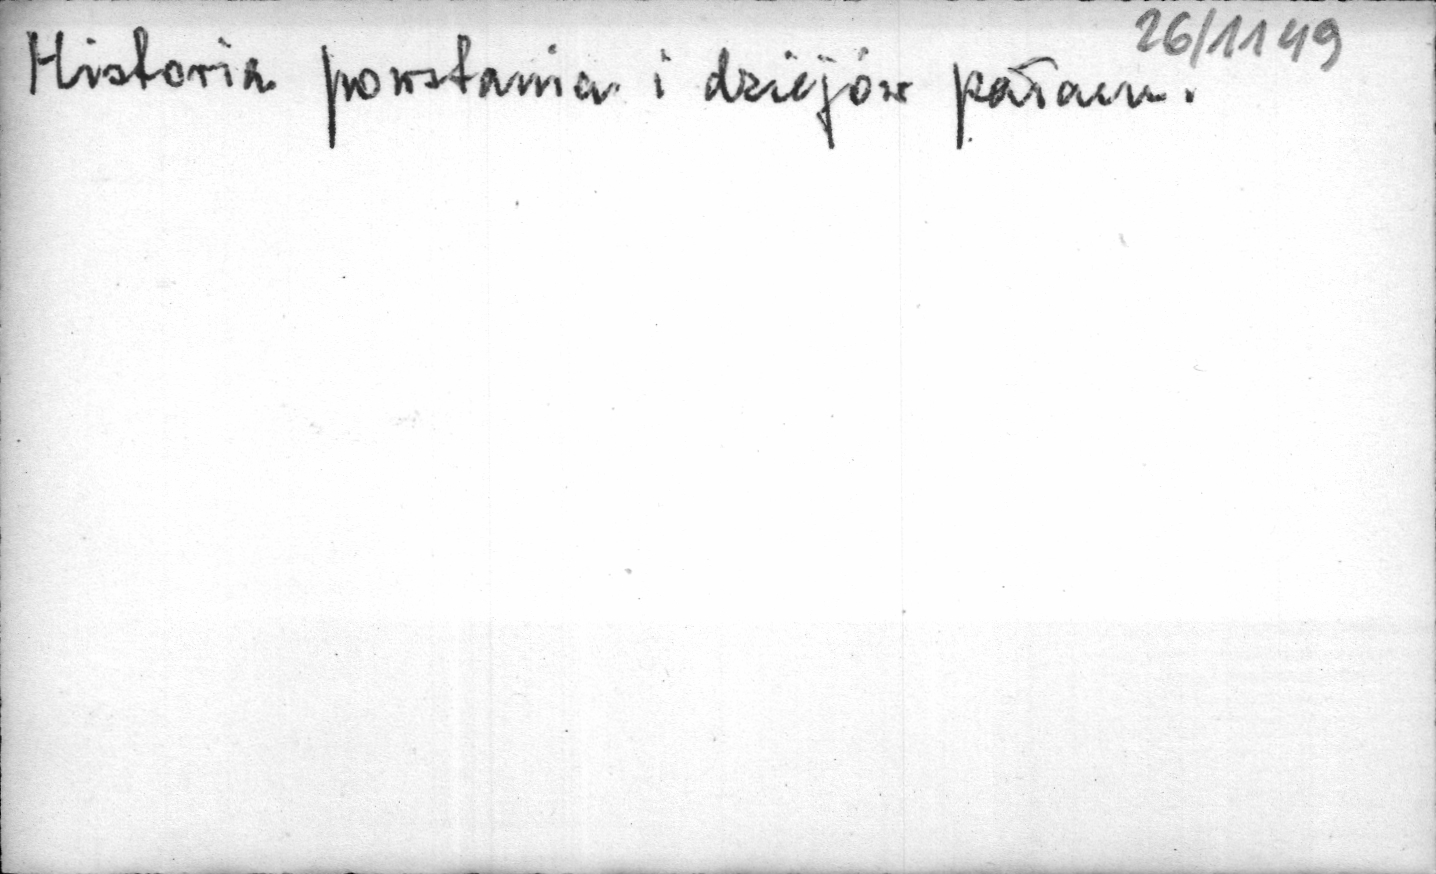 26/1149
Historia powstania i dziejów pałacu.